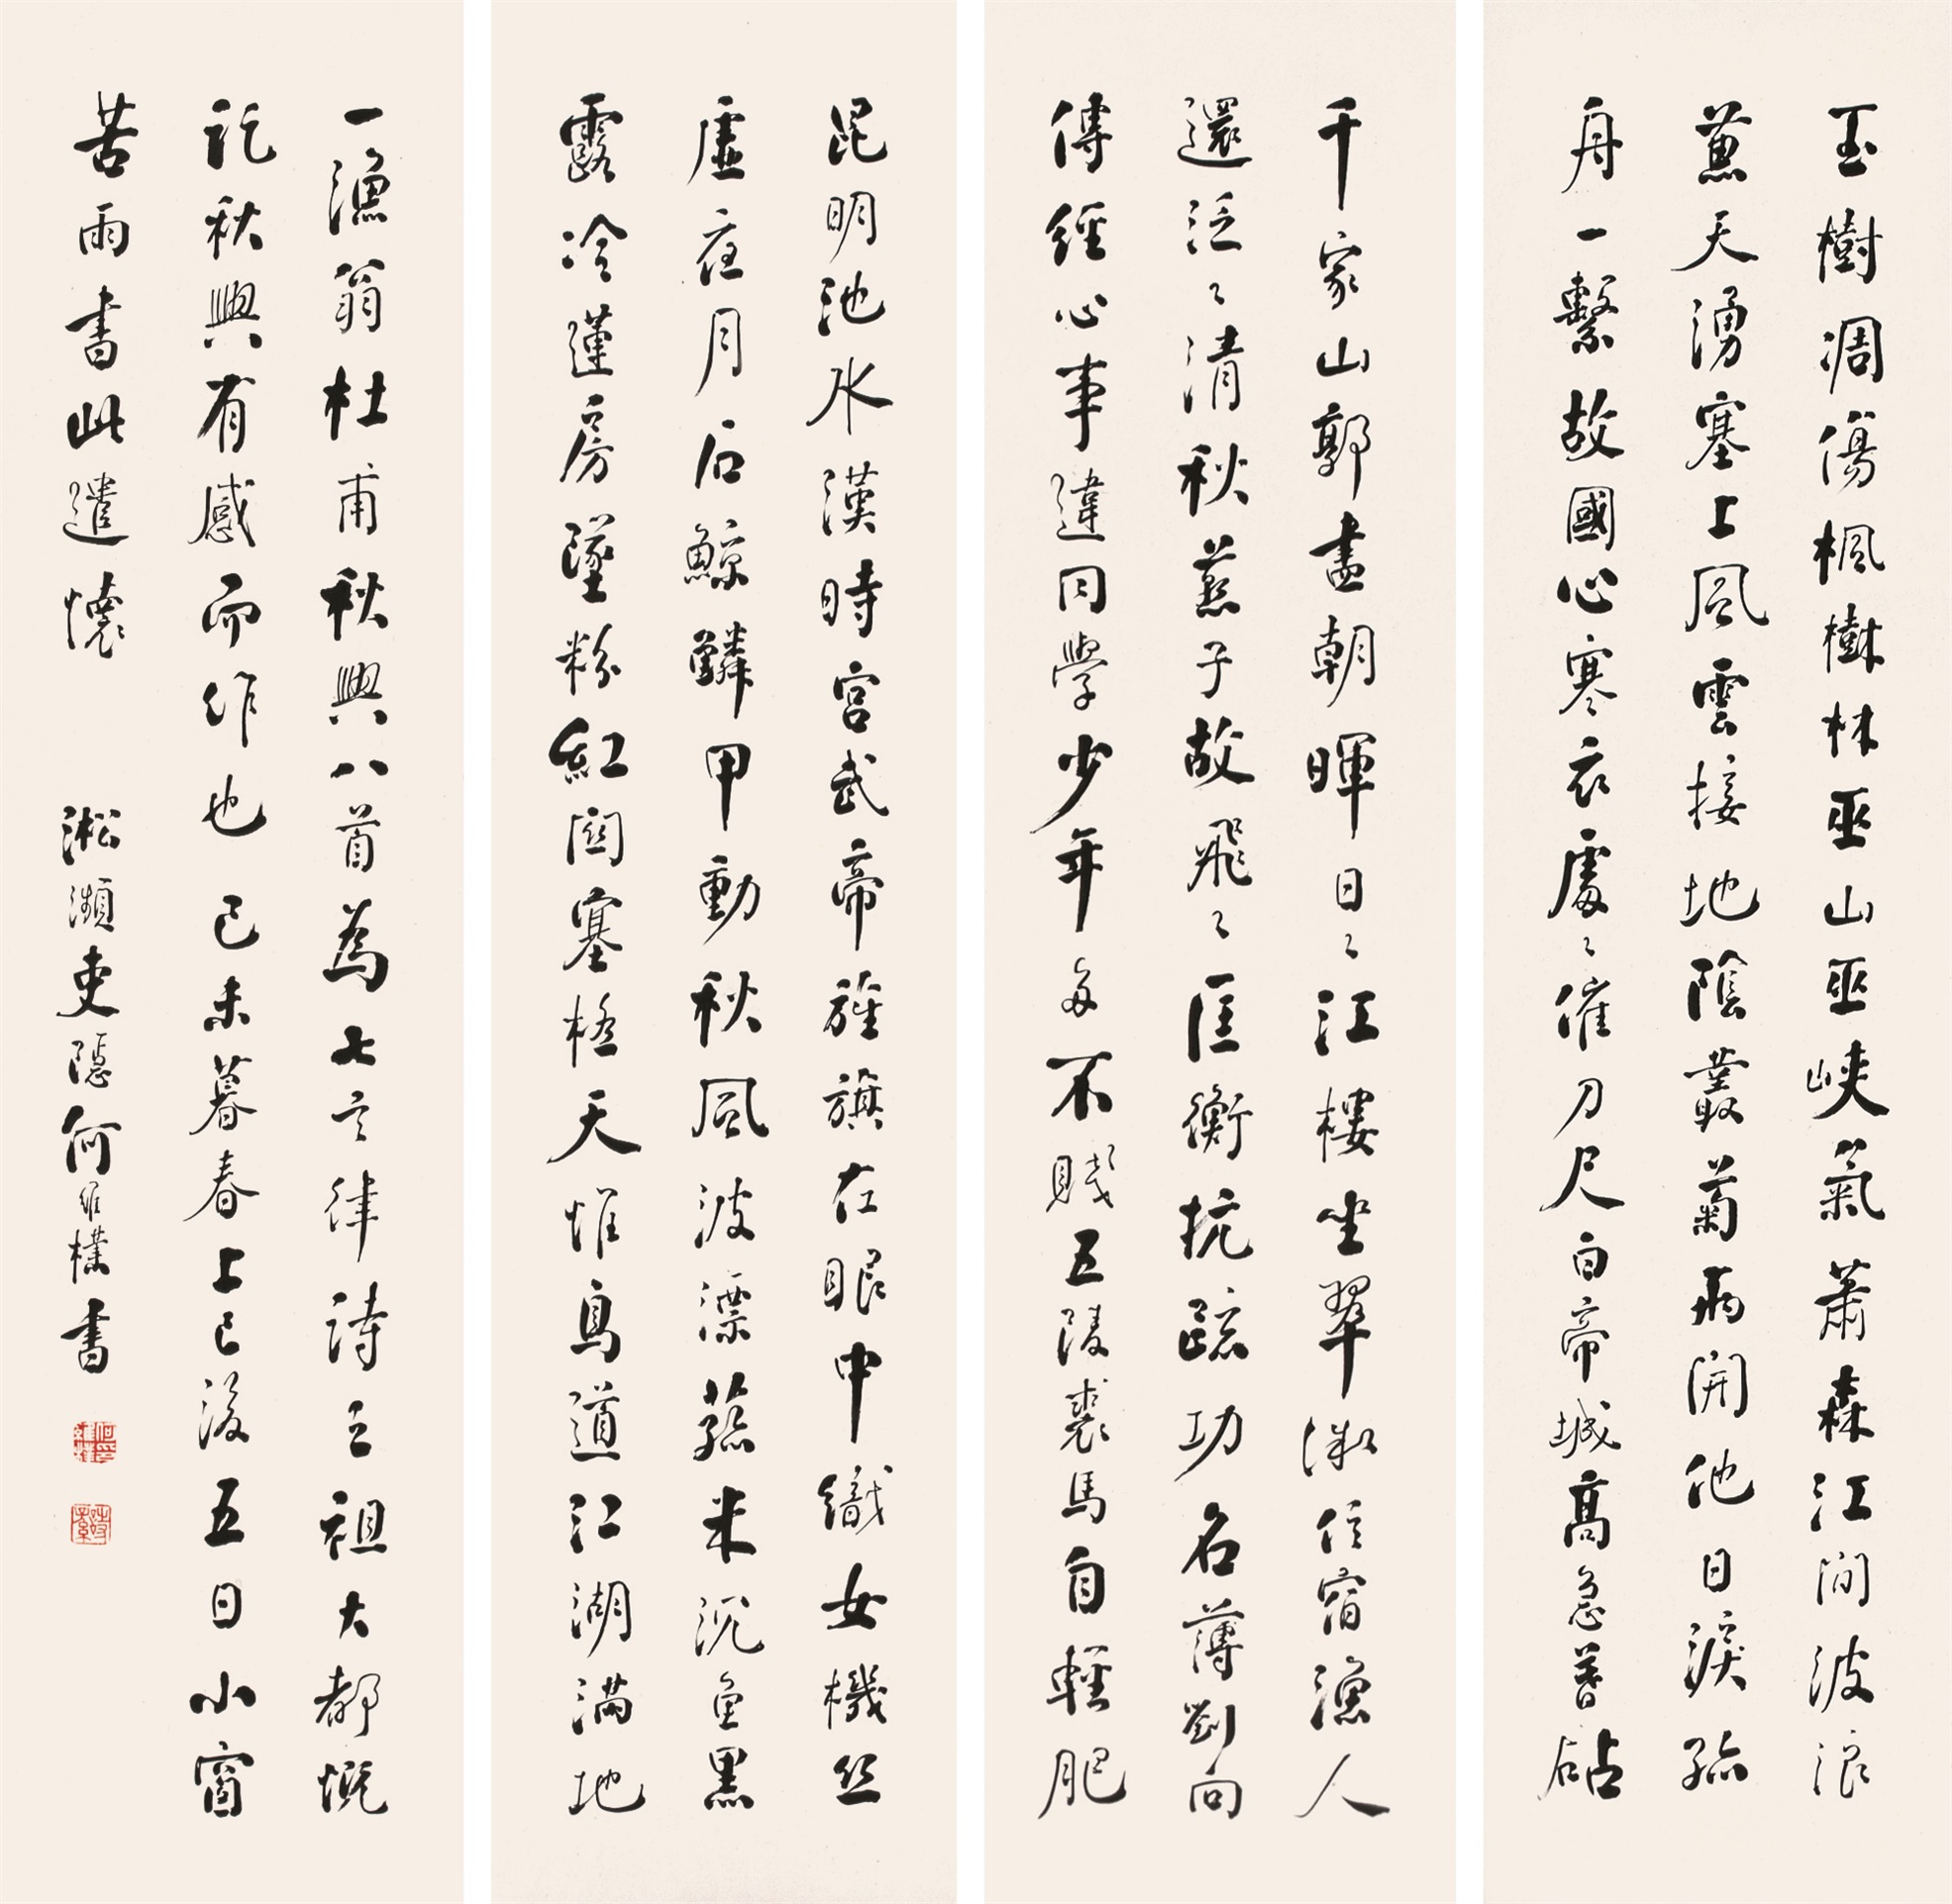 玉樹凋傷楓樹林巫山巫峽氣蕭森江間波浪
蒹天湧塞上風雲接地陰叢菊兩開他日淚孤
舟一繫故國心寒衣處〻催刀尺白帝城高急暮砧
千家山郭晝朝暉日〻江樓坐翠微信宿漁人
還泛〻清秋燕子故飛〻匡衡抗疏功名薄劉向
傳經心事違同學少年多不賤五陵裘馬自輕肥
昆明池水漢時宮武帝旌旗在眼中織女機絲
虛夜月石鯨鱗甲動秋風波漂菰米沉魚黑
露冷蓮房墜粉紅關塞極天惟鳥道江湖滿地
一漁翁杜甫秋興八首為七言律詩之祖大都慨
託秋興有感而作也己未暮春上巳後五日小窗
苦雨書此遣懷 淞瀕吏隱何維樸書
何維樸印
詩孫